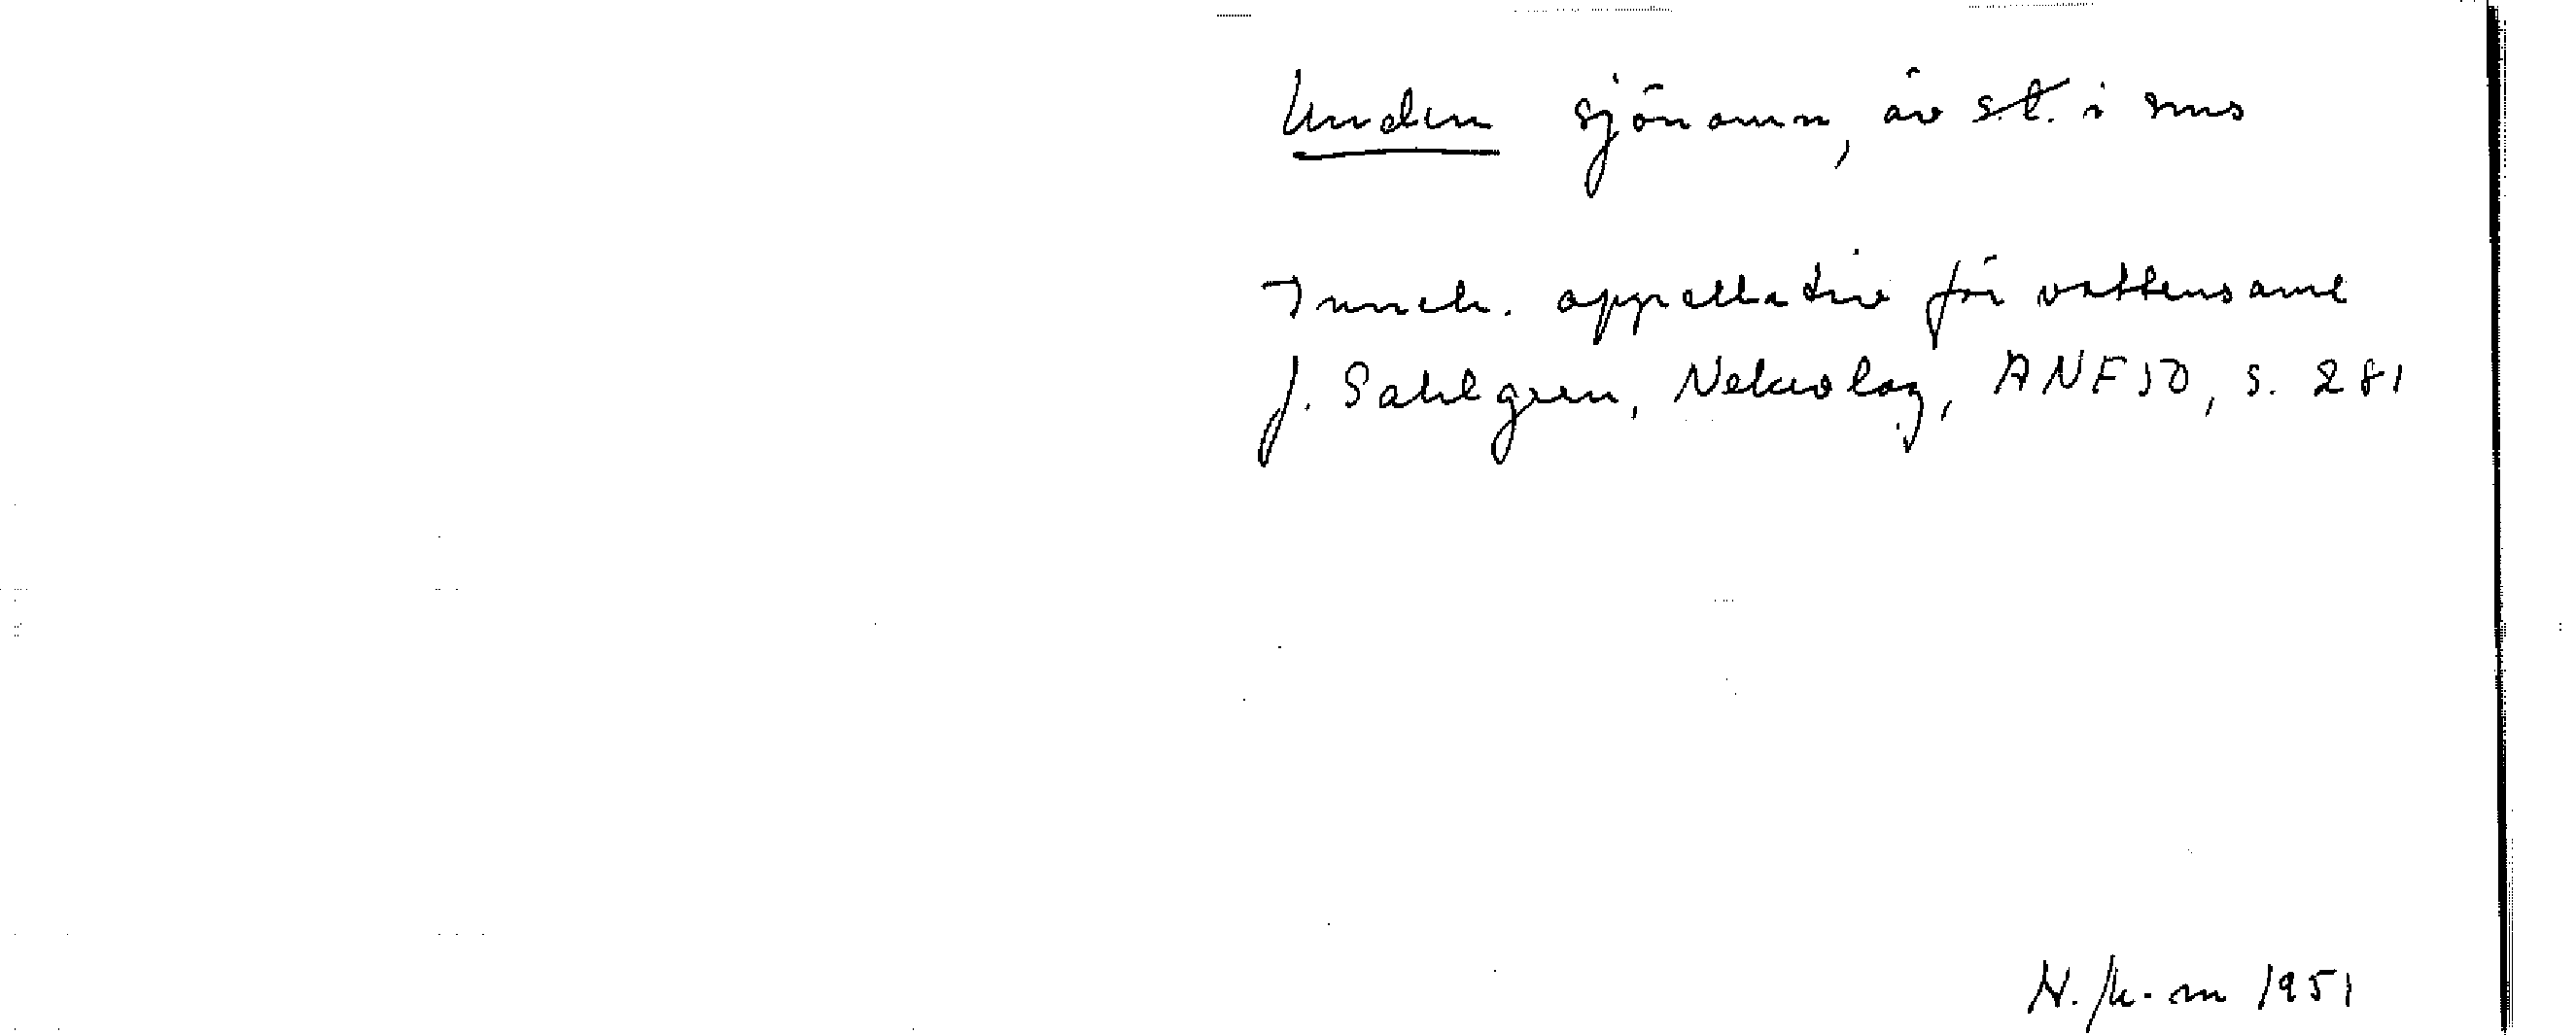 Unden sjönamn, äv s.t. i sms
Inneh. appellativ för vattensaml
J. Sahlgren, Nekrolog, ANF 50, s. 281
1951